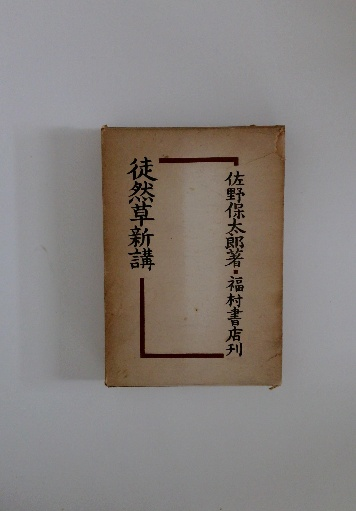 佐野保太郎著・福村書店刊
徒然草新講